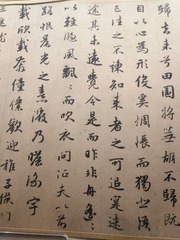 歸去来兮田園將蕪胡不歸既
自以心為形役奚惆悵而獨悲悟
已往之不諫知来者之可追寔迷
途其未遠覺今是而昨非舟
以輕颺風飄而吹衣問征夫以前
路恨晨光之熹微乃瞻衡宇
載欣載奔僮僕歡迎稚子候門